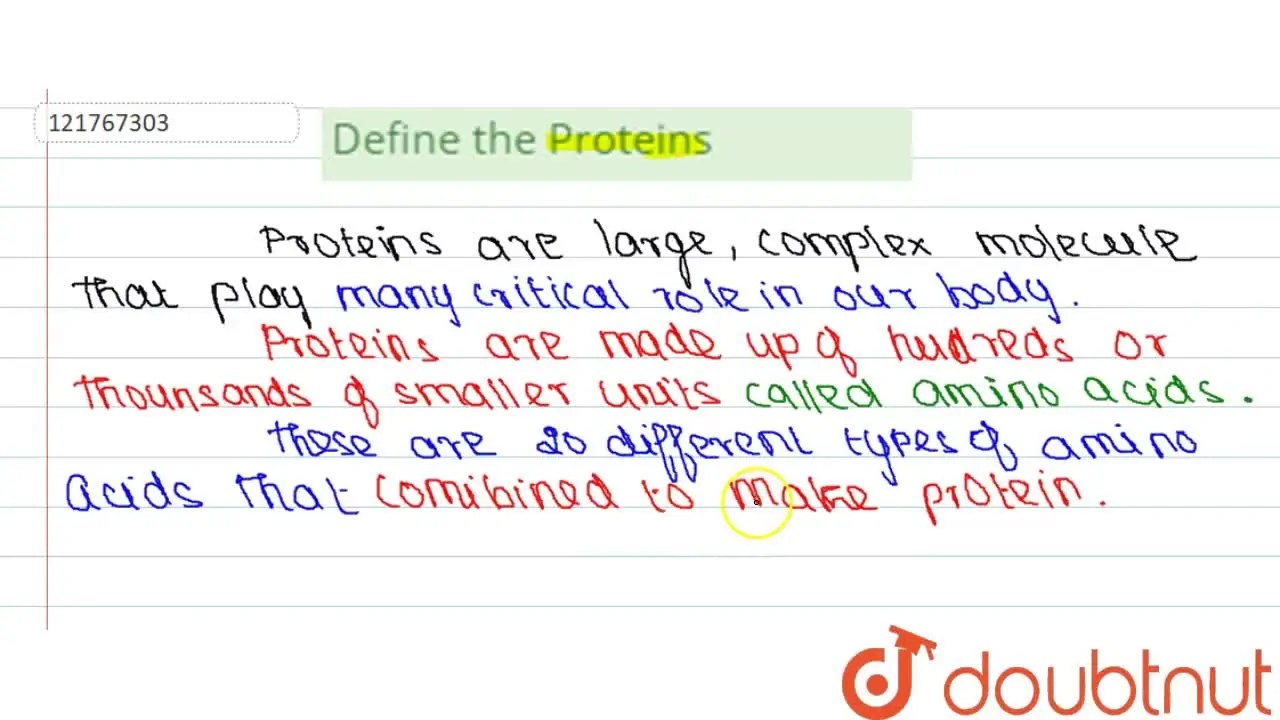 121767303
Define the Proteins
Proteins are large, complex molecule
that play many critical role in our body.
Proteins are made up of hudreds or
thounsands of smaller units called amino acids.
these are 20 different types of amino
acids that comibined to make protein.
doubtnut